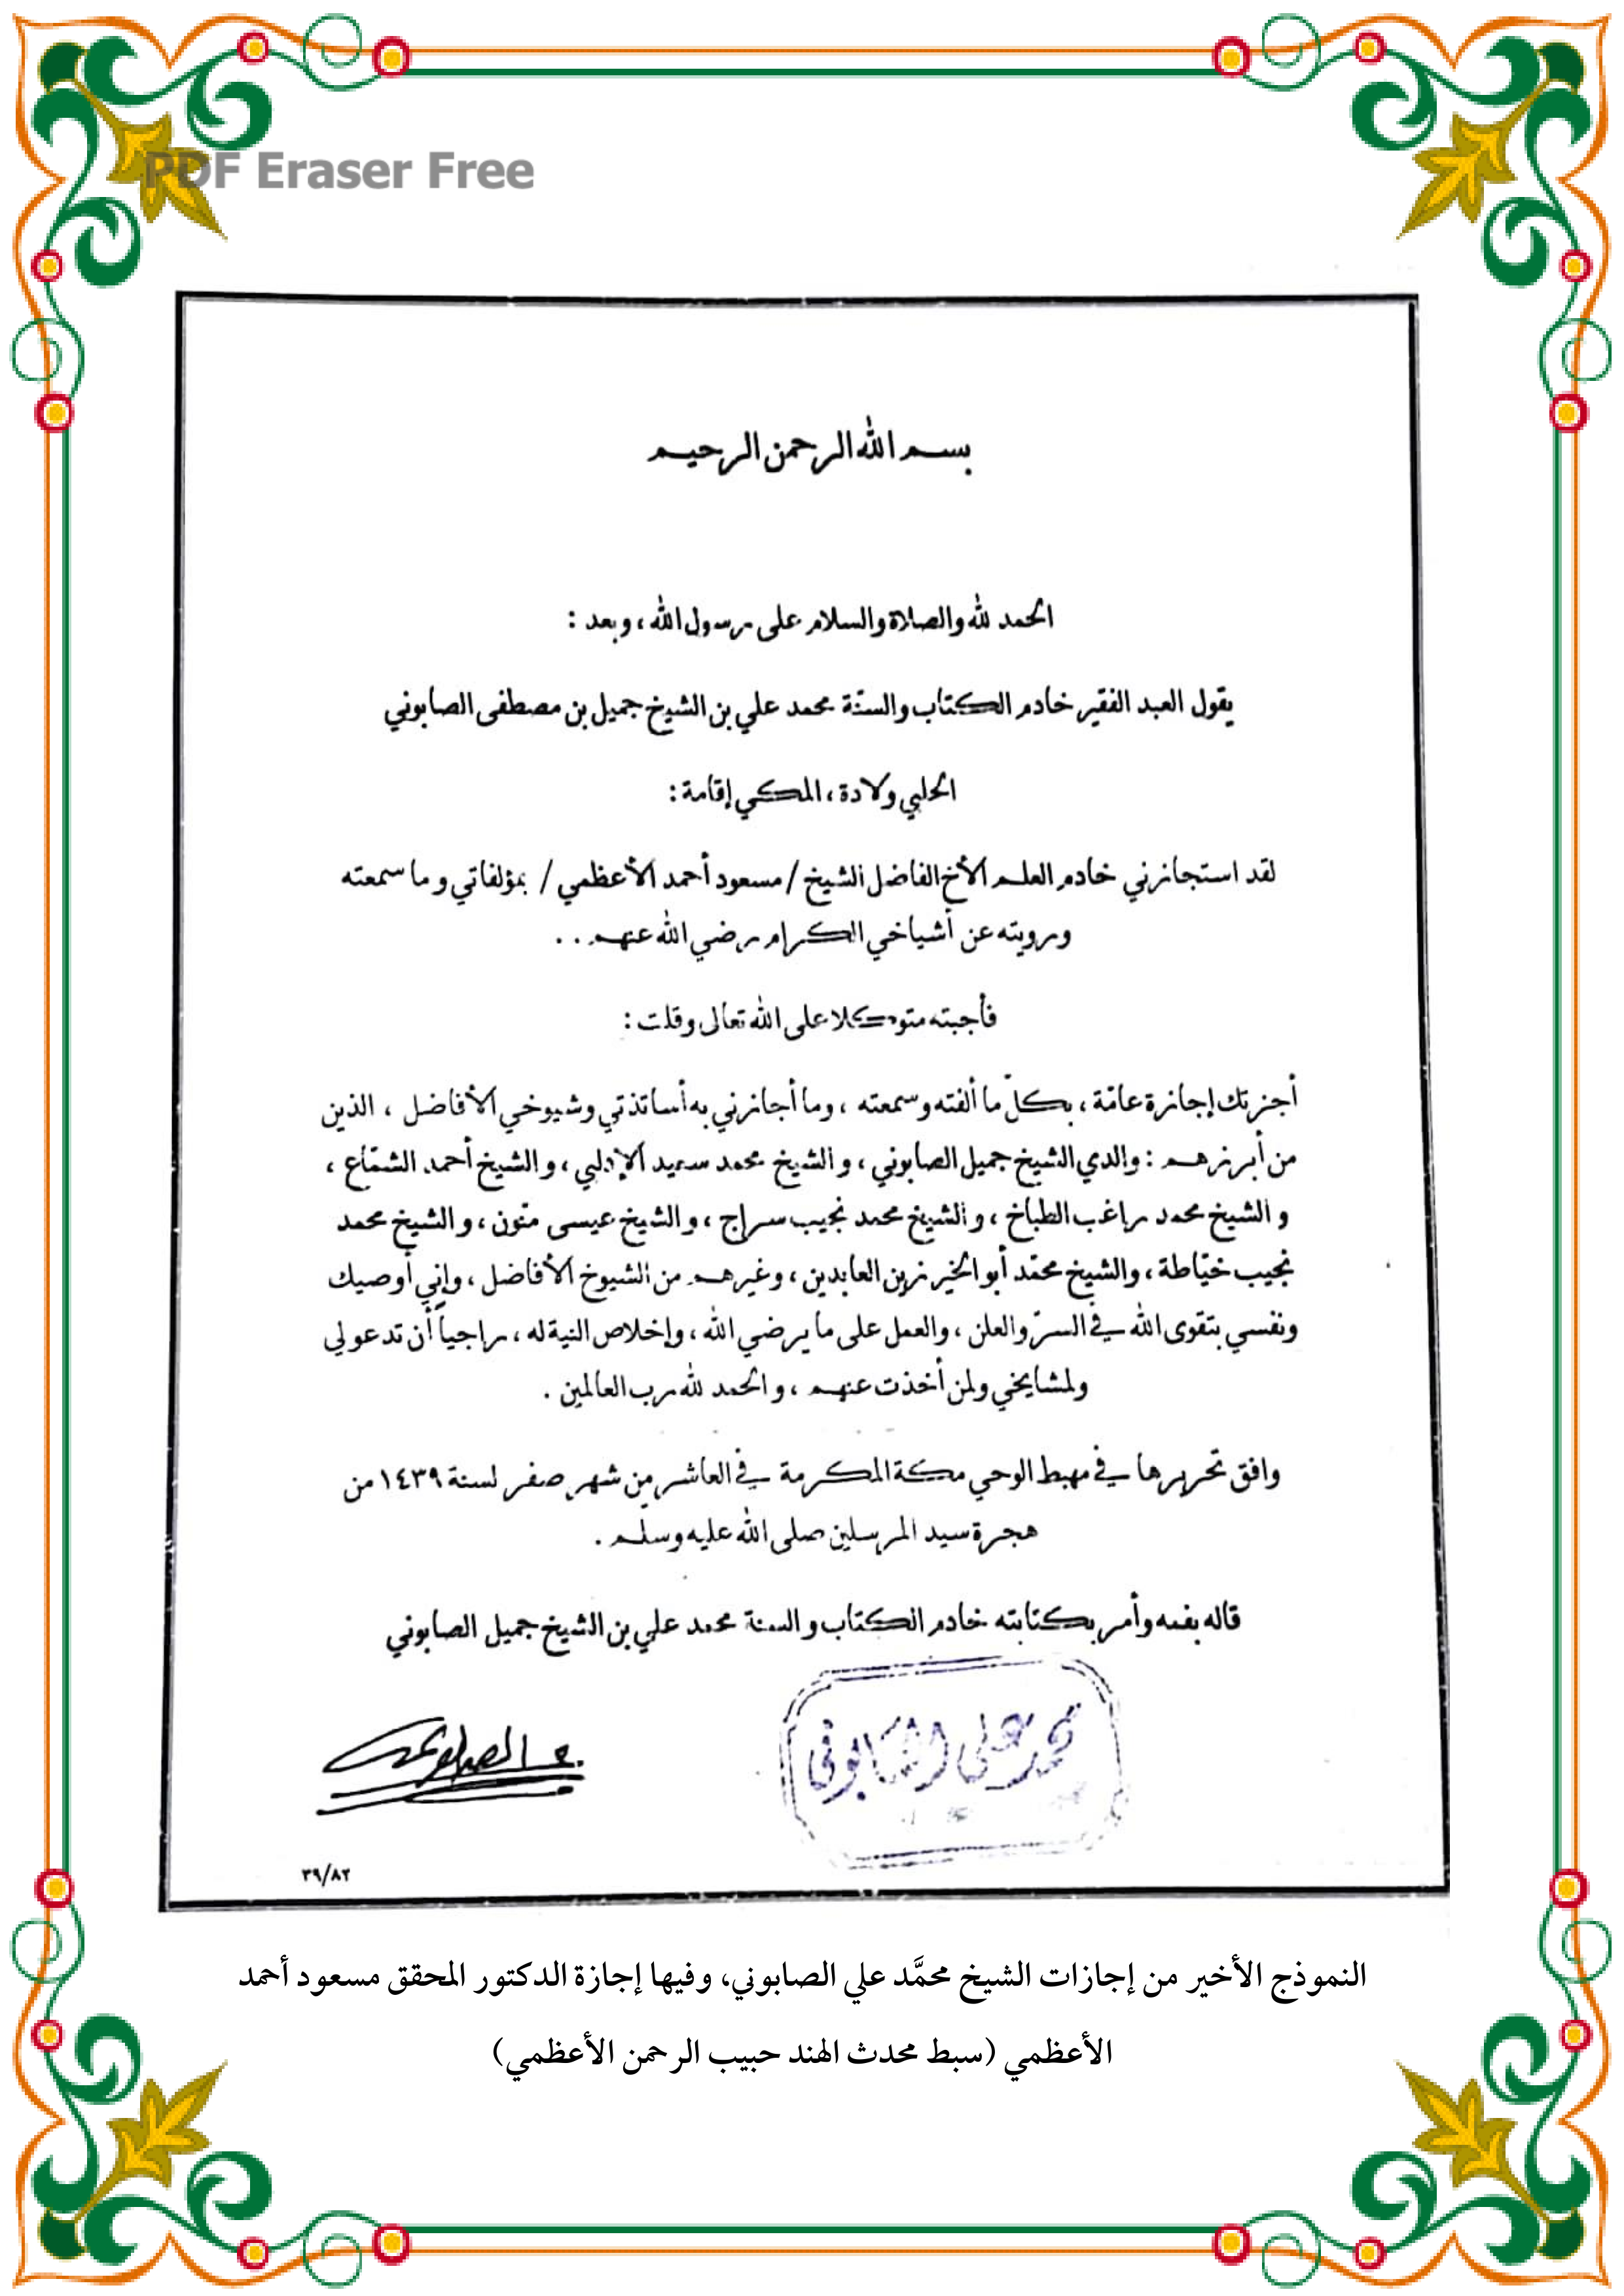 PDF Eraser Free
بسم الله الرحمن الرحيم
الحمد لله والصلاة والسلام على رسول الله ، وبعد :
يقول العبد الفقير خادم الكتاب والسنّة محمد علي بن الشيخ جميل بن مصطفى الصابوني
الحلبي ولادة ، المكي إقامة :
لقد استجازني خادم العلم الأخ الفاضل الشيخ / مسعود أحمد الأعظمي / بمؤلفاتي وما سمعته
ورويته عن أشياخي الكرام رضي الله عنهم . . .
فأجبته متوكلا على الله تعالى وقلت :
أجزتك إجازة عامّة ، بكلّ ما ألفته وسمعته ، وما أجازني به أساتذتي وشيوخي الأفاضل ، الذين
من أبرزهم : والدي الشيخ جميل الصابوني ، والشيخ محمد سعيد الإدلبي ، والشيخ أحمد الشمّاع ،
والشيخ محمد راغب الطباخ ، والشيخ محمد نجيب سراج ، والشيخ عيسى منّون ، والشيخ محمد
نجيب خيّاطة ، والشيخ محمّد أبو الخير زين العابدين ، وغيرهم من الشيوخ الأفاضل ، وإني أوصيك
ونفسي بتقوى الله في السرّ والعلن ، والعمل على ما يرضي الله ، وإخلاص النية له ، راجياً أن تدعو لي
ولمشايخي ولمن أخذت عنهم ، والحمد لله رب العالمين .
وافق تحريرها في مهبط الوحي مكة المكرمة في العاشر من شهر صفر لسنة ١٤٣٩ من
هجرة سيد المرسلين صلى الله عليه وسلم .
قاله بفمه وأمر بكتابته خادم الكتاب والسنة محمد علي بن الشيخ جميل الصابوني
محمد علي الصابوني
م . الصابوني
٣٩/٨٢
النموذج الأخير من إجازات الشيخ محمَّد علي الصابوني، وفيها إجازة الدكتور المحقق مسعود أحمد
الأعظمي (سبط محدث الهند حبيب الرحمن الأعظمي)